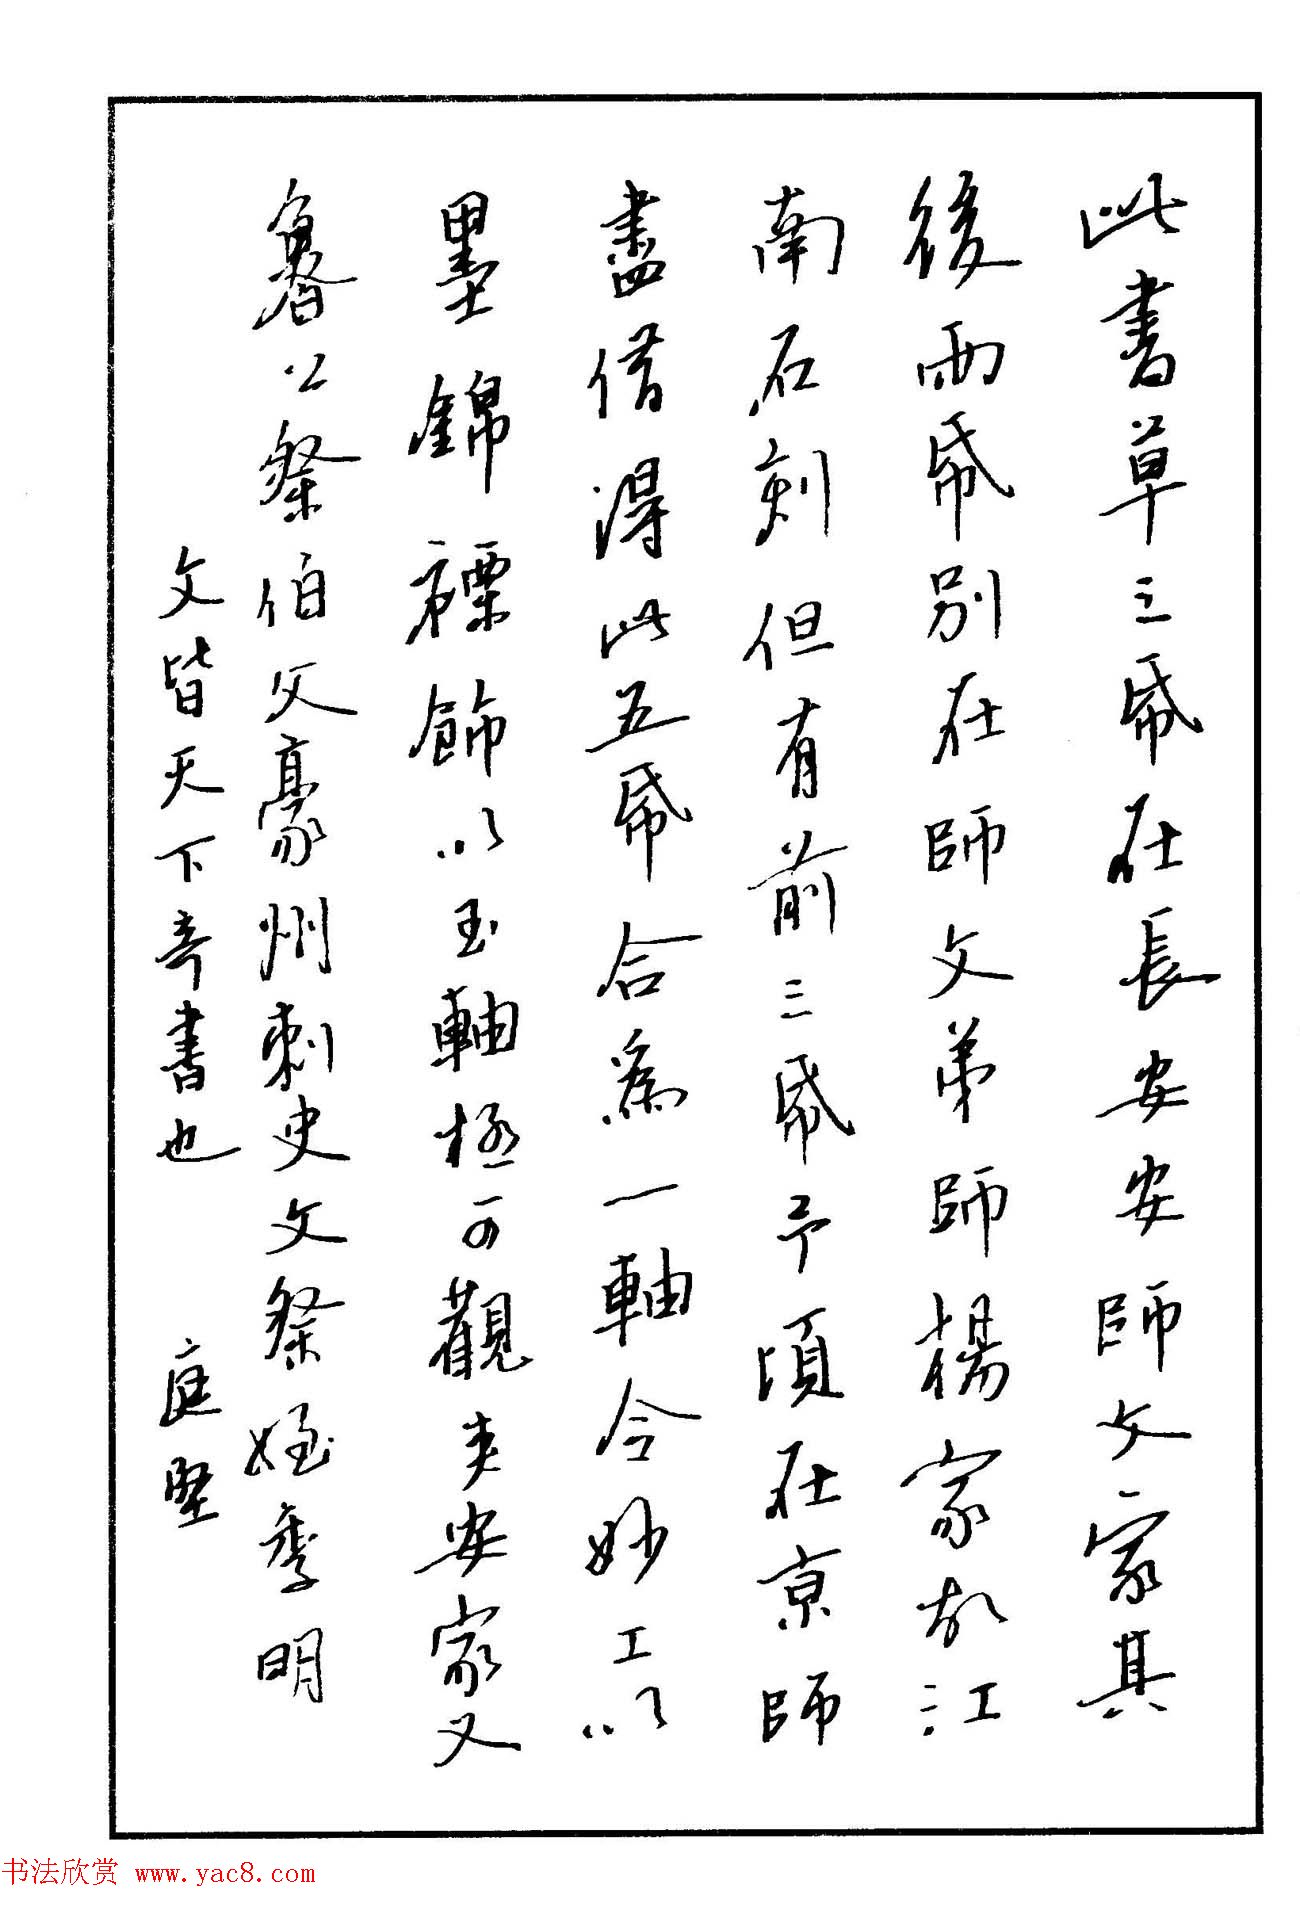 此書草三紙在長安安師文家其
後兩紙別在師文弟師楊家故江
南石刻但有前三紙予頃在京師
盡借得此五紙合為一軸令妙工以
墨錦褾飾以玉軸極可觀矣安家又
魯公祭伯父豪州刺史文祭姪季明
文皆天下奇書也 庭堅
书法欣赏 www.yac8.com